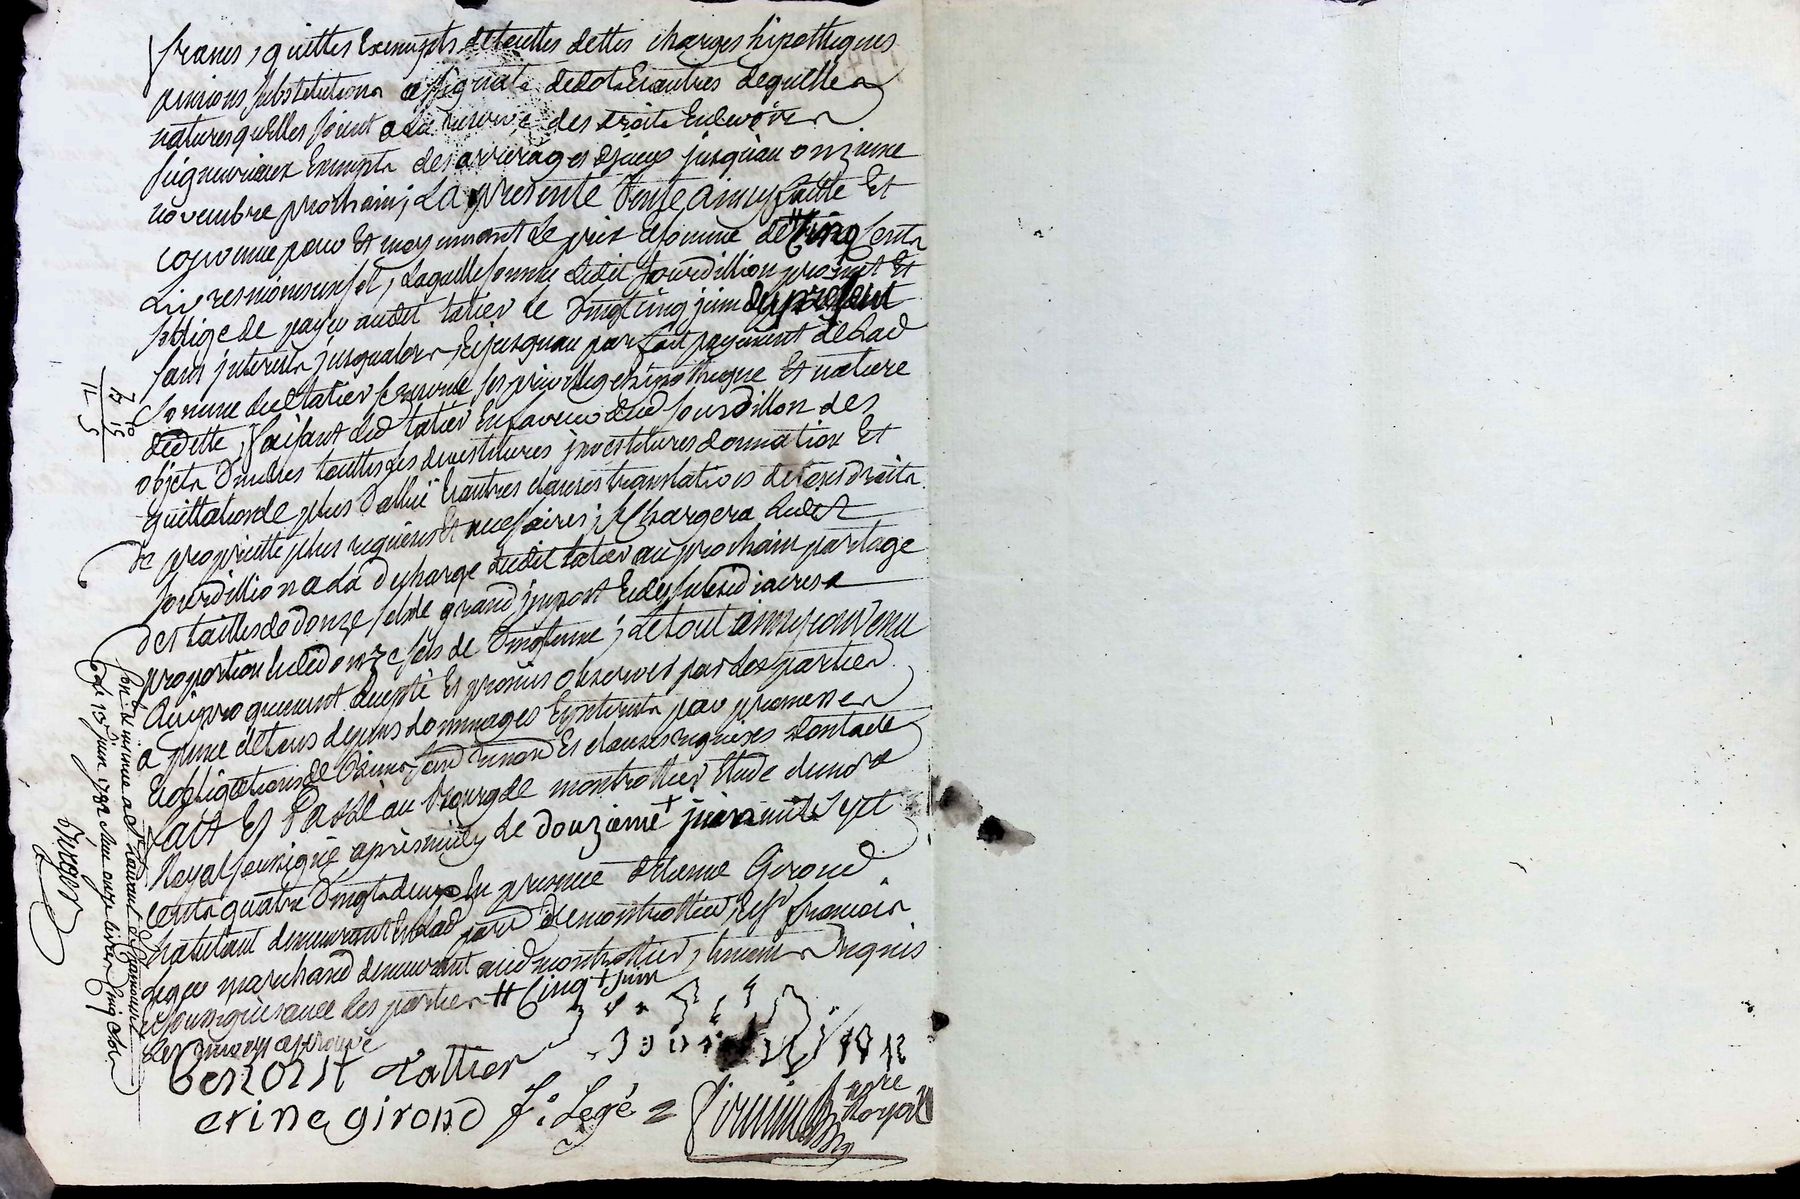 francs, quittes Exempts de touttes dettes charges hipotheques
pensions substitutions assignats de dot Et autres de quelles
natures quelles soient a la reserve des droits Et devoirs
seigneuriaux Exempts des arrerages dyceux jusqu'au onzieme
novembre prochain; La presente Vente ainsy faitte Et
convenue pour Et moyennant le prix Et somme de # Cinq Cents
Livres, Laquelle somme Ledit Jourdillion promet Et
soblige de payer audit tatier le Vingt cinq juin du present
sans interets jusqualors, Et jusquau parfait payement de Lad
somme Led tatier se reserve ses privilege Et hipotheque Et nature
de dette, faisant Led tatier En faveur dud Jourdillon des
objets Vendus touttes les devestitures jnvestitures donnation Et
quittation de plus Vallüe Et autres clauses translatives de tous droits
de propriette plus requises Et necessaires; se Chargera Ledit
Jourdillion a la decharge dudit tatier au prochain partage
des tailles de douze sols de grand jmpost Et des subsidiaires a
proportion de Vingtieme; le tout ainsy convenu
reciproquement accepté Et promis observer par les parties
a peine de tous depens dommages Et jnterets par promesses
Et obligations de Biens, soum renon Et clauses requises dont acte
Fait Et Passé au bourg de montrottier Etude du nore
Royal soussigné apres midy le douzieme + juin mil Sept
cents quatre Vingt deux En presence detienne Giroud
habitant demeurant En lad parr de montrottier, Et sr francois
Leger marchand demeurant aud montrottier, temoins requis
Et soussignés avec les parties # Cinq + juin
approuvé
benoist tattier
etine giroud f. Legé = nore Royal
con. la minute a St Laurent de Chamousset
le 15 juin 1782 Recu onze livres cinq sols
7 10
15
11 5